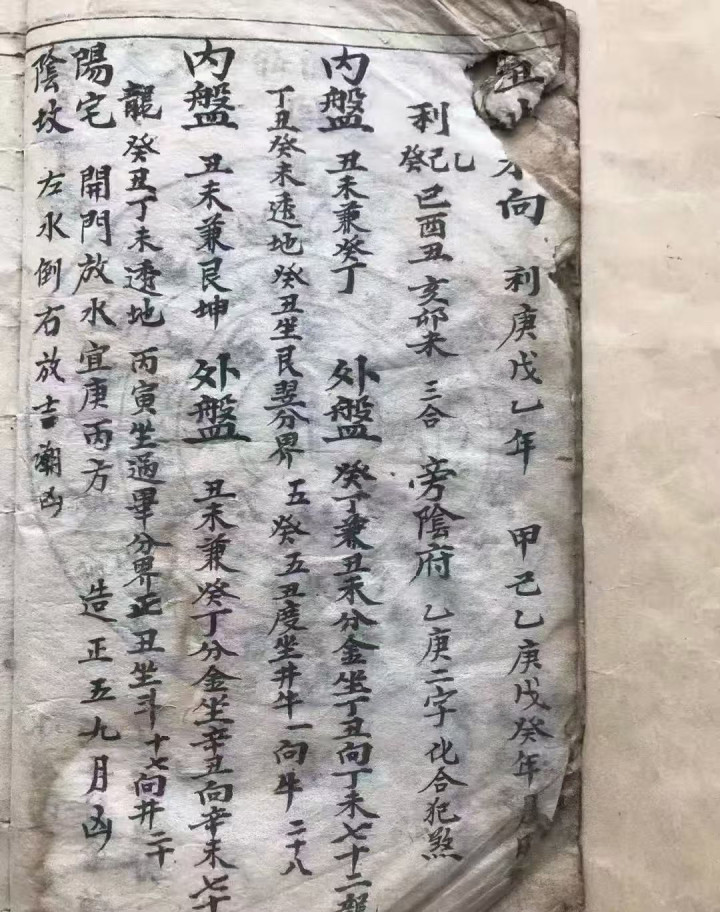 丑山未向 利庚戊乙年 甲己乙庚戊癸年月
利癸己乙巳酉丑亥卯未三合 旁陰府 乙庚二字化合犯煞
内盤 丑未兼癸丁 外盤 癸丁兼丑未分金坐丁丑向丁未七十二龍
丁丑癸未透地 癸丑坐艮翌分界 五癸五丑度坐井牛一向牛二十八
内盤 丑未兼艮坤 外盤 丑未兼癸丁分金坐辛丑向辛未七十
龍癸丑丁未透地 丙寅坐過畢分界正丑坐斗十七向井二十
陽宅 開門放水宜庚丙方 造正五九月凶
陰坟 左水倒右放吉潮凶